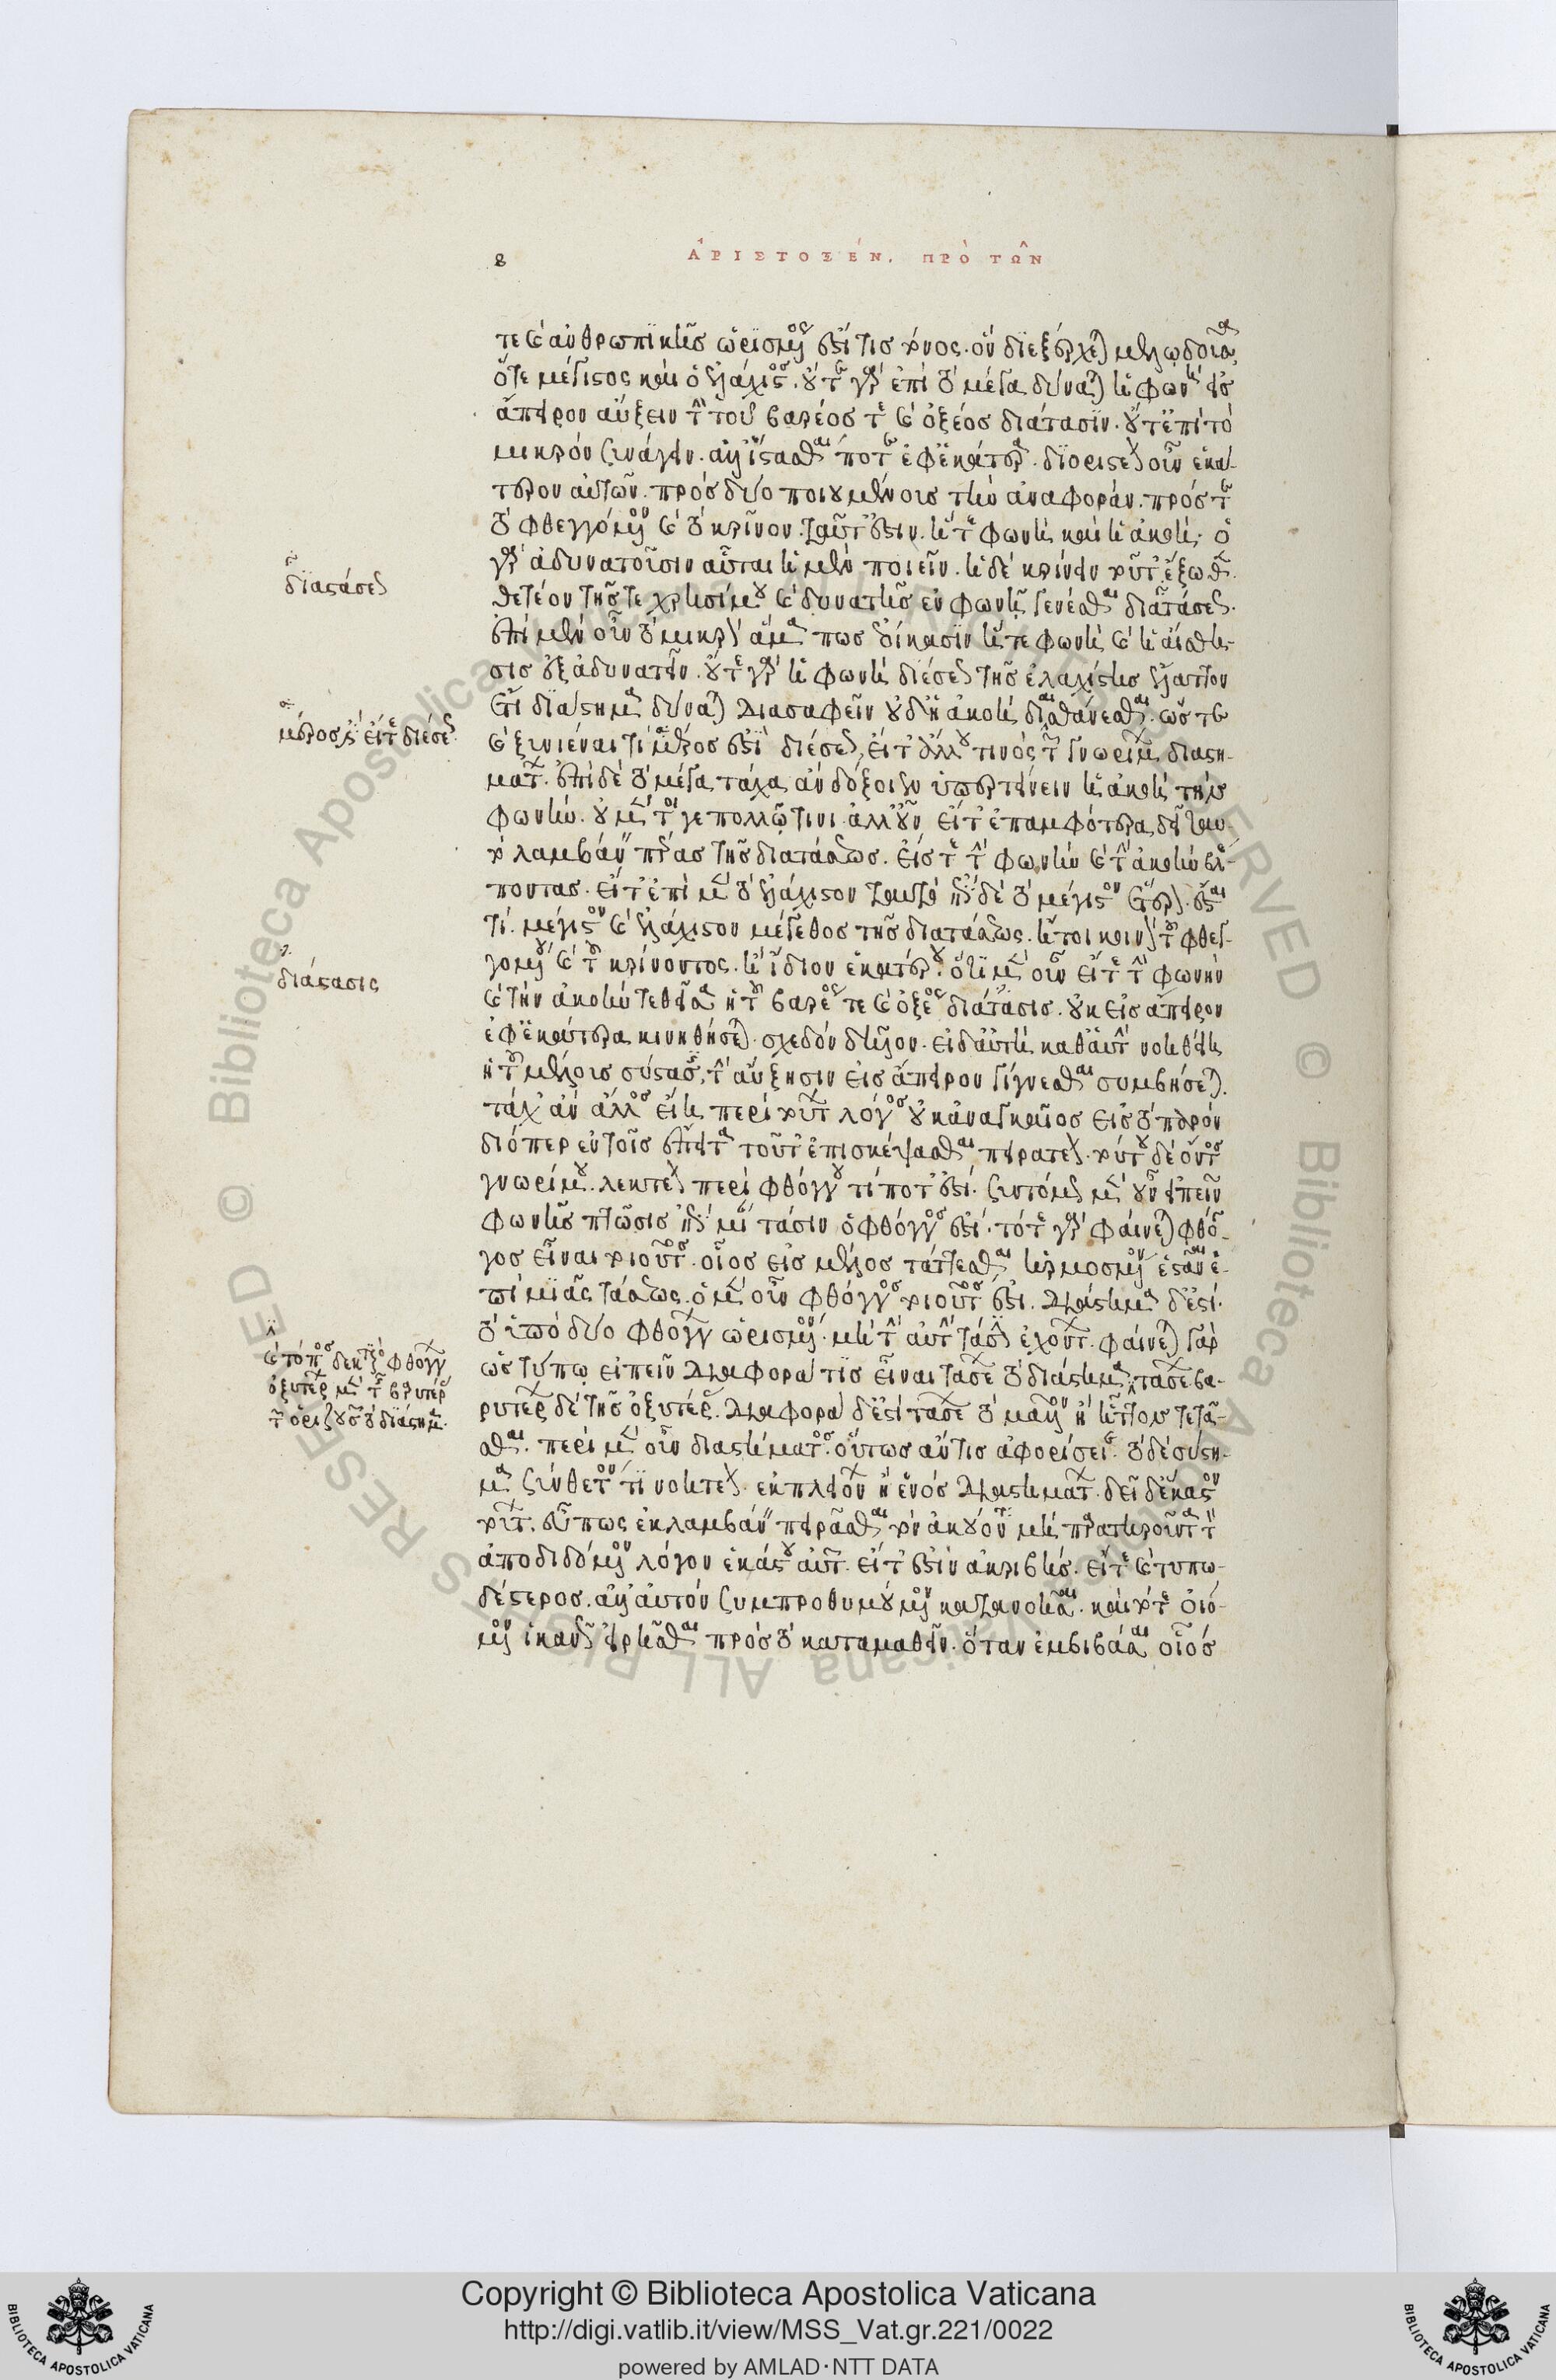 8 ἈΡΙΣΤΟΞΈΝ. ΠΡῸ ΤΩ͂Ν
τε καὶ ἀνθρωπϊκῆς ὡρϊσμένος ἐστί τις τόπος. ὃν δϊεξέρχεται μελῳδοῦσα
ὅτε μέγιστος καὶ ὁ ἐλάχιστος. οὔτε γὰρ ἐπὶ τὸ μέγα δύναται ἡ φωνὴ εἰς
ἄπειρον αὔξειν τὴν τοῦ βαρέος τε καὶ ὀξέος διάτασϊν. οὔτ ἐπὶ τὸ
μικρὸν συνάγειν. ἀλλ ἵσταται ποτε ἐφ ἑκάτερα. δϊοριστέον οὖν ἑκά-
τερον αὐτῶν. πρὸς δύο ποιουμένοις τὴν ἀναφοράν. πρός τε
τὸ φθεγγόμενον καὶ τὸ κρῖνον. ταῦτα δ ἐστιν. ἥ τε φωνὴ καὶ ἡ ἀκοή. ὃ
γὰρ ἀδυνατοῦσιν αὗται ἡ μὲν ποιεῖν. ἡ δὲ κρίνειν τοῦτ ἔξω
θετέον τῆς τε χρησίμου καὶ δυνατῆς ἐν φωνῇ γενέσθαι διατάσεως.
ἐπὶ μὲν οὖν τὸ μικρὸν ἅμα πως ἐοίκασϊν ἥ τε φωνὴ καὶ ἡ αἴσθη-
σις ἐξαδυνατεῖν. οὔτε γὰρ ἡ φωνὴ διέσεως τῆς ἐλαχίστης ἔλαττον
ἔτι διάστημα δύναται διασαφεῖν οὐδ ἡ ἀκοὴ διαισθάνεσθαι. ὥστε
καὶ ξυνιέναι τί μέρος ἐστὶ διέσεως, εἴτ ἄλλου τινὸς τῶν γνωρίμων διαστη-
μάτων. ἐπὶ δὲ τὸ μέγα τάχα ἂν δόξειεν ὑπερτείνειν ἡ ἀκοὴ τὴν
φωνήν. οὐ μέντοι γε πολλῷ τινι. ἀλλ οὖν εἴτ ἐπ ἀμφότερα δεῖ ταυ-
τὸ λαμβάνειν πέρας τῆς διατάσεως. εἴς τε τὴν φωνὴν καὶ τὴν ἀκοὴν βλέ-
ποντας. εἴτ ἐπὶ μὲν τὸ ἐλάχιστον ταυτὸ ἐπὶ δὲ τὸ μέγιστον ἕτερον. ἔσται
τι μέγιστον καὶ ἐλάχιστον μέγεθος τῆς διατάσεως. ἤτοι κοινὸν τοῦ φθεγ-
γομένου καὶ τοῦ κρίνοντος. ἢ ἴδιον ἑκατέρου. ὅτι μὲν οὖν εἴς τε τὴν φωνὴν
καὶ τὴν ἀκοὴν τεθεῖσα ἡ τοῦ βαρέος τε καὶ ὀξέος διάτασις. οὐκ εἰς ἄπειρον
ἐφ ἑκάτερα κινηθήσεται. σχεδὸν δῆλον. εἰ δ αὐτὴ καθ αὑτὴν νοηθείη
ἡ τοῦ μέλους σύστασις, τὴν αὔξησιν εἰς ἄπειρον γίγνεσθαι συμβήσεται.
τάχ ἂν ἄλλος εἴη περὶ τούτων λόγος οὐκ ἀναγκαῖος εἰς τὸ παρὸν
διόπερ ἐν τοῖς ἔπειτα τοῦτ ἐπισκέψασθαι πειρατέον. τούτου δὲ ὄντος
γνωρίμου. λεκτέον περὶ φθόγγου τί ποτ ἐστί. συντόμως μὲν οὖν εἰπεῖν
φωνῆς πτῶσις ἐπὶ μίαν τάσιν ὁ φθόγγος ἐστί. τότε γὰρ φαίνεται φθόγ-
γος εἶναι τοιοῦτος. οἷος εἰς μέλος τάττεσθαι ἡρμοσμένον ἑστάναι ἐ-
πὶ μιᾶς τάσεως. ὁ μὲν οὖν φθόγγος τοιοῦτός ἐστι. διάστημα δ ἐστὶ
τὸ ὑπὸ δύο φθόγγων ὡρισμένον. μὴ τὴν αὐτὴν τάσιν ἐχόντων. φαίνεται γὰρ
ὡς τύπῳ εἰπεῖν διαφορά τις εἶναι τάσεων τὸ διάστημα
ρυτέρων δὲ τῆς ὀξυτέρας. διαφορὰ δ ἐστὶ τάσεων τὸ μᾶλλον ἢ ἧττον τετά-
σθαι. περὶ μὲν οὖν διαστήματος. οὕτως ἄν τις ἀφορίσειε. τὸ δὲ σύστη-
μα σύνθετόν τι νοητέον. ἐκ πλειόνων ἢ ἑνὸς διαστημάτων. δεῖ δ ἕκαστον
τούτων. εὖ πως ἐκλαμβάνειν πειρᾶσθαι τὸν ἀκούοντα μὴ παρατηροῦντα τὸν
ἀποδιδόμενον λόγον ἑκάστου αὐτῶν. εἴτ ἐστὶν ἀκριβής. εἴτε καὶ τυπω-
δέστερος. ἀλλ αὐτὸν συμπροθυμούμενον κατανοῆσαι. καὶ τότε οἰό-
μενον ἱκανῶς εἰρῆσθαι πρὸς τὸ καταμαθεῖν. ὅταν ἐμβιβάσαι οἷός
διαστάσεως
μέρος ἐστὶ εἴτε διέσεως
διάστασις
καὶ τόπος δεκτικὸς φθόγγων
ὀξυτέρων μὲν τῆς βαρυτέρας
τῶν ὁριζουσῶν τὸ διάστημα.
Copyright © Biblioteca Apostolica Vaticana
http://digi.vatlib.it/view/MSS_Vat.gr.221/0022
powered by AMLAD·NTT DATA